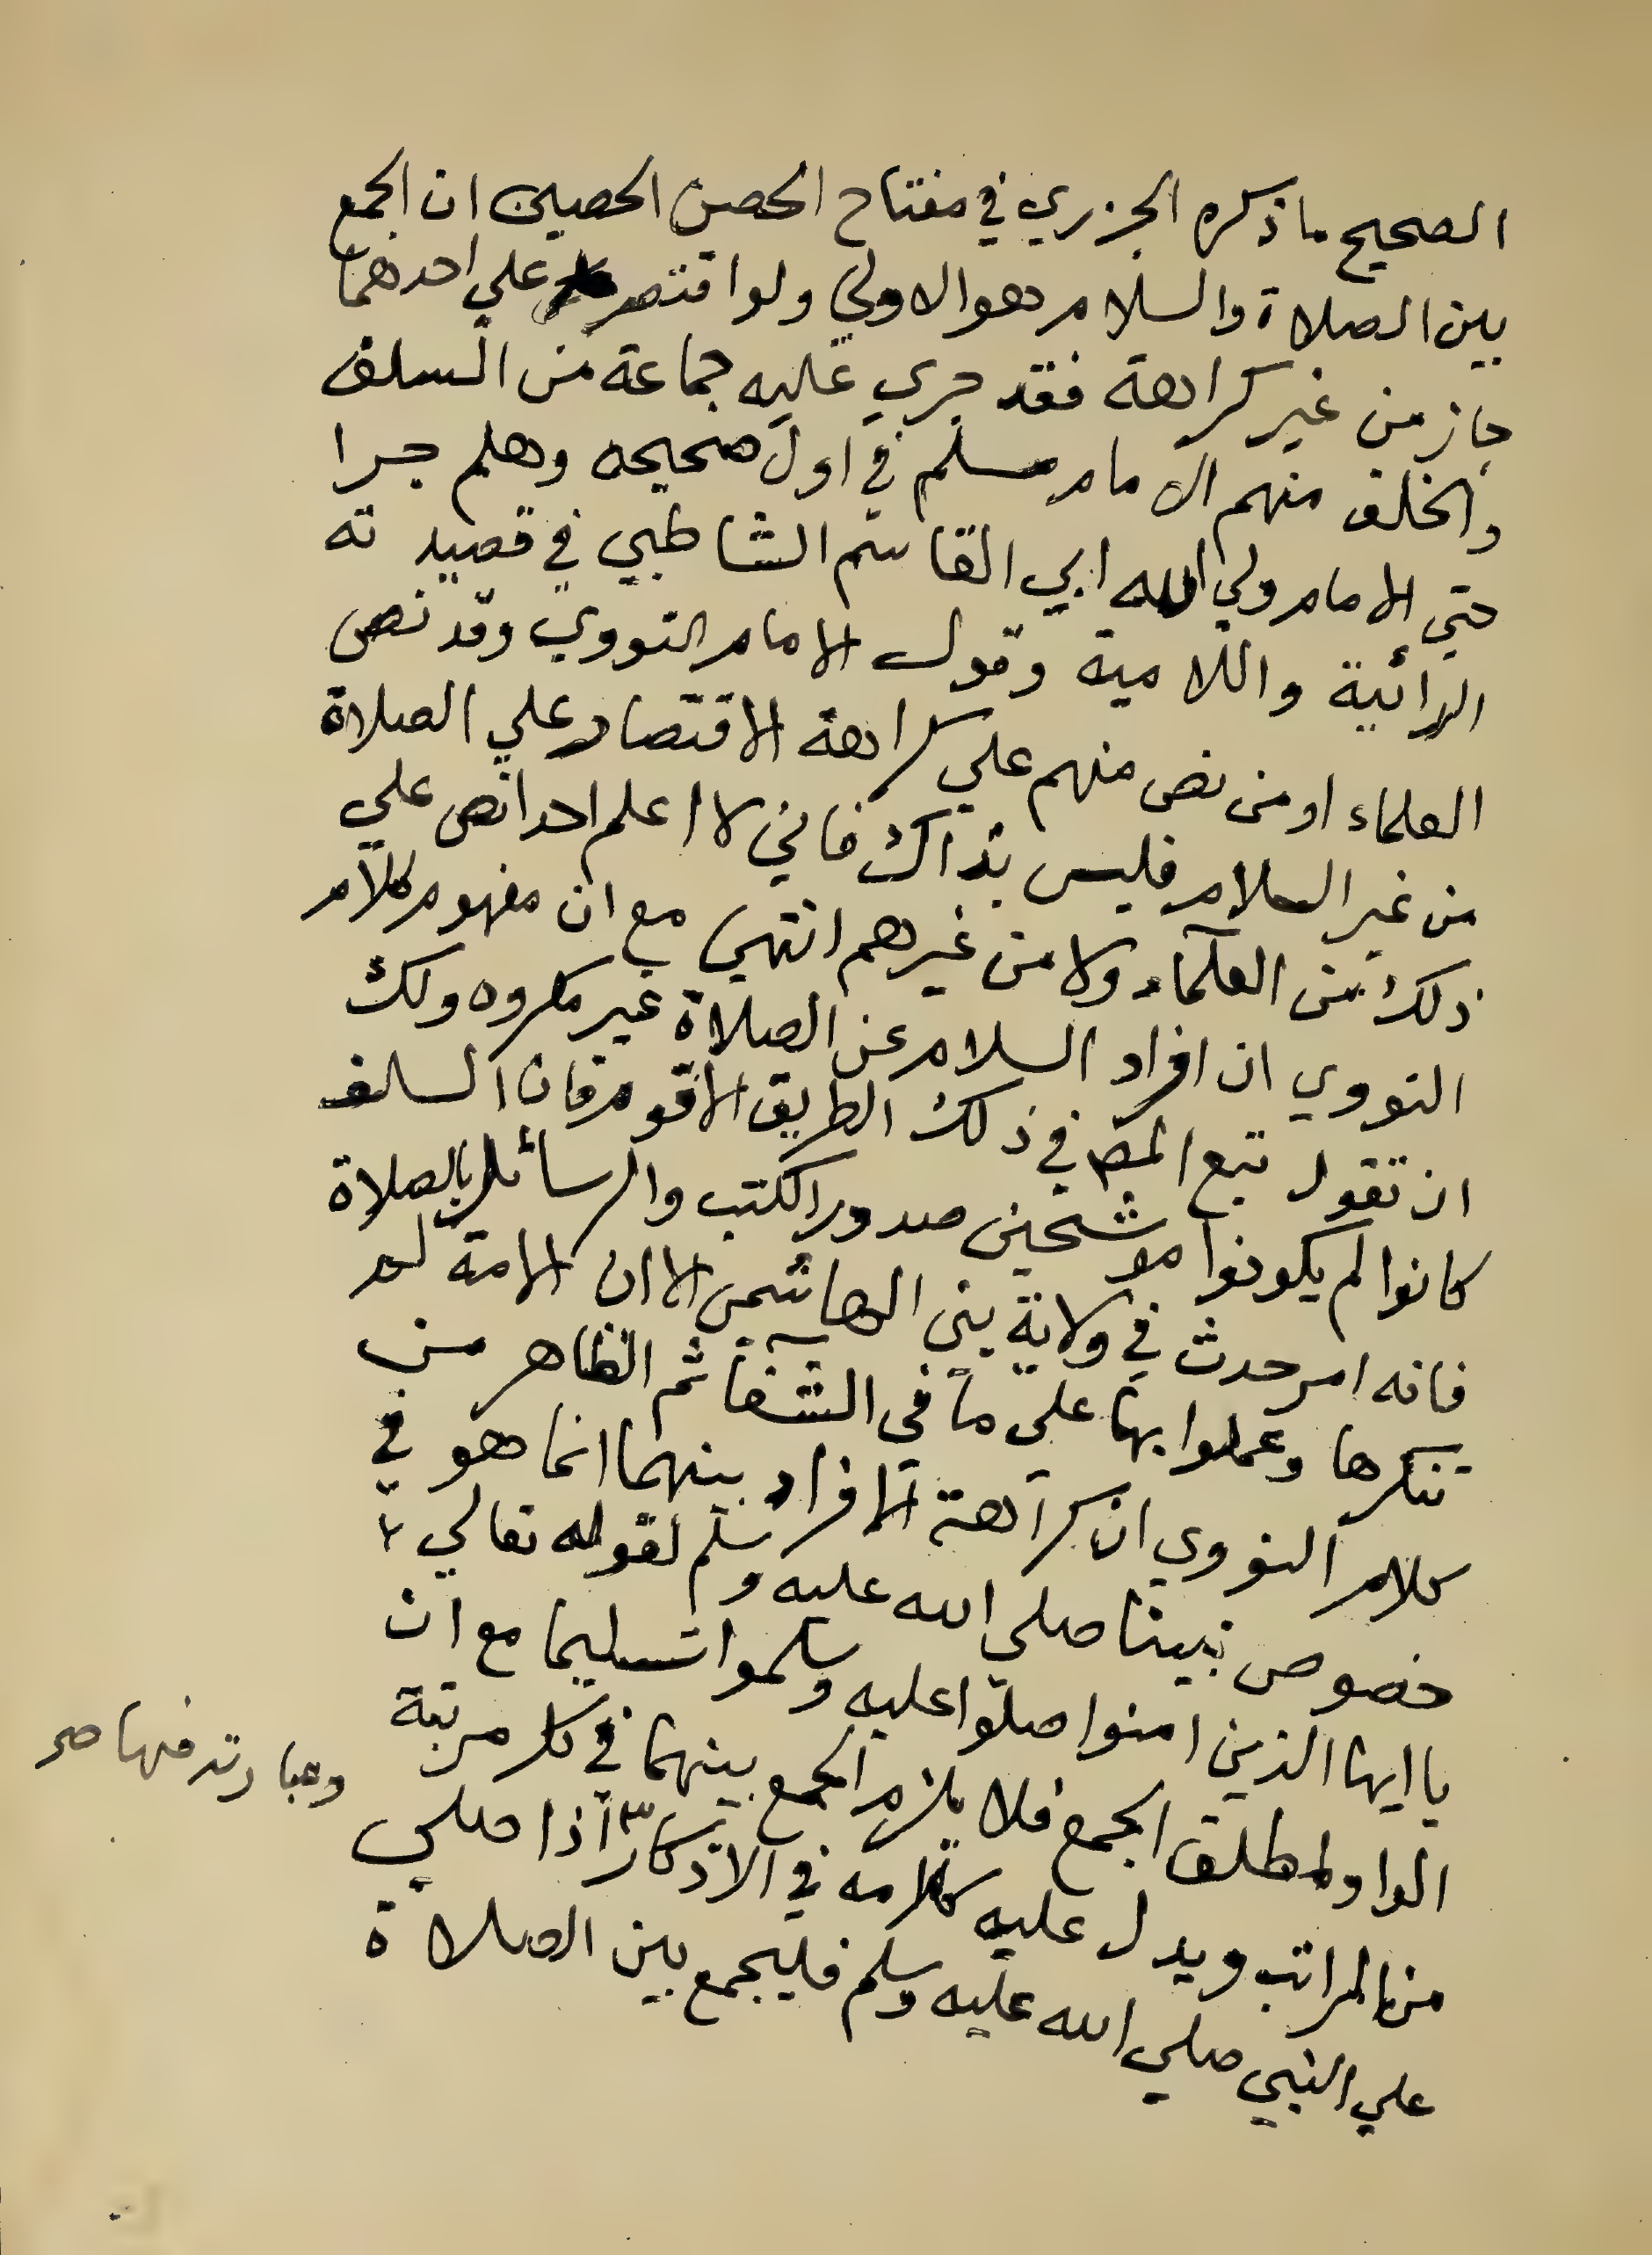 الصحيح ما ذكره الجزري في مفتاح الحصن الحصين ان الجمع
بين الصلاة والسلام هو الاولي ولو اقتصر علي احدهما
جاز من غير كراهة فقد جري عليه جماعة من السلف
والخلف منهم الامام مسلم في اول صحيحه وهلم جرا
حتي الامام ولي الله ابي القاسم الشاطبي في قصيدته
الرائية واللامية وقول الامام النووي وقد نص
العلماء او من نص منهم علي كراهة الاقتصار علي الصلاة
من غير السلام فليس بذاك فاني لا اعلم احدا نص علي
ذلك من العلماء ولا من غيرهم انتهي مع ان مفهوم كلام
النووي ان افراد السلام عن الصلاة غير مكروه ولك
ان تقول تبع المص في ذلك الطريق الاقوم فان السلف
كانوا لم يكونوا موشحين صدور الكتب والرسائل بالصلاة
فانه امر حدث في ولاية بني الهاشمي الا ان الامة لم
تنكرها وعملوا بها علي ما في الشفا ثم الظاهر من
كلام النووي ان كراهة الافراد بينهما انما هو في
خصوص نبينا صلي الله عليه وسلم لقوله تعالي
يا ايها الذين امنوا صلوا عليه وسلموا تسليما مع ان
الواو لمطلق الجمع فلا يلزم الجمع بينهما في كل مرتبة
من المراتب ويدل عليه كلامه في الاذكار اذا صلي
وعبارته فيها صح
علي النبي صلي الله عليه وسلم فليجمع بين الصلاة